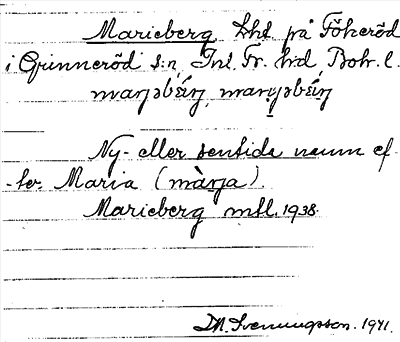 Marieberg lht på Fökeröd
i Grinneröd s:n, Inl. Fr. hd Boh. l.
Ny- eller sentida namn ef-
-ter Maria (màrja).
Marieberg mtl. 1938.
D.M. Svenningsson. 1941.